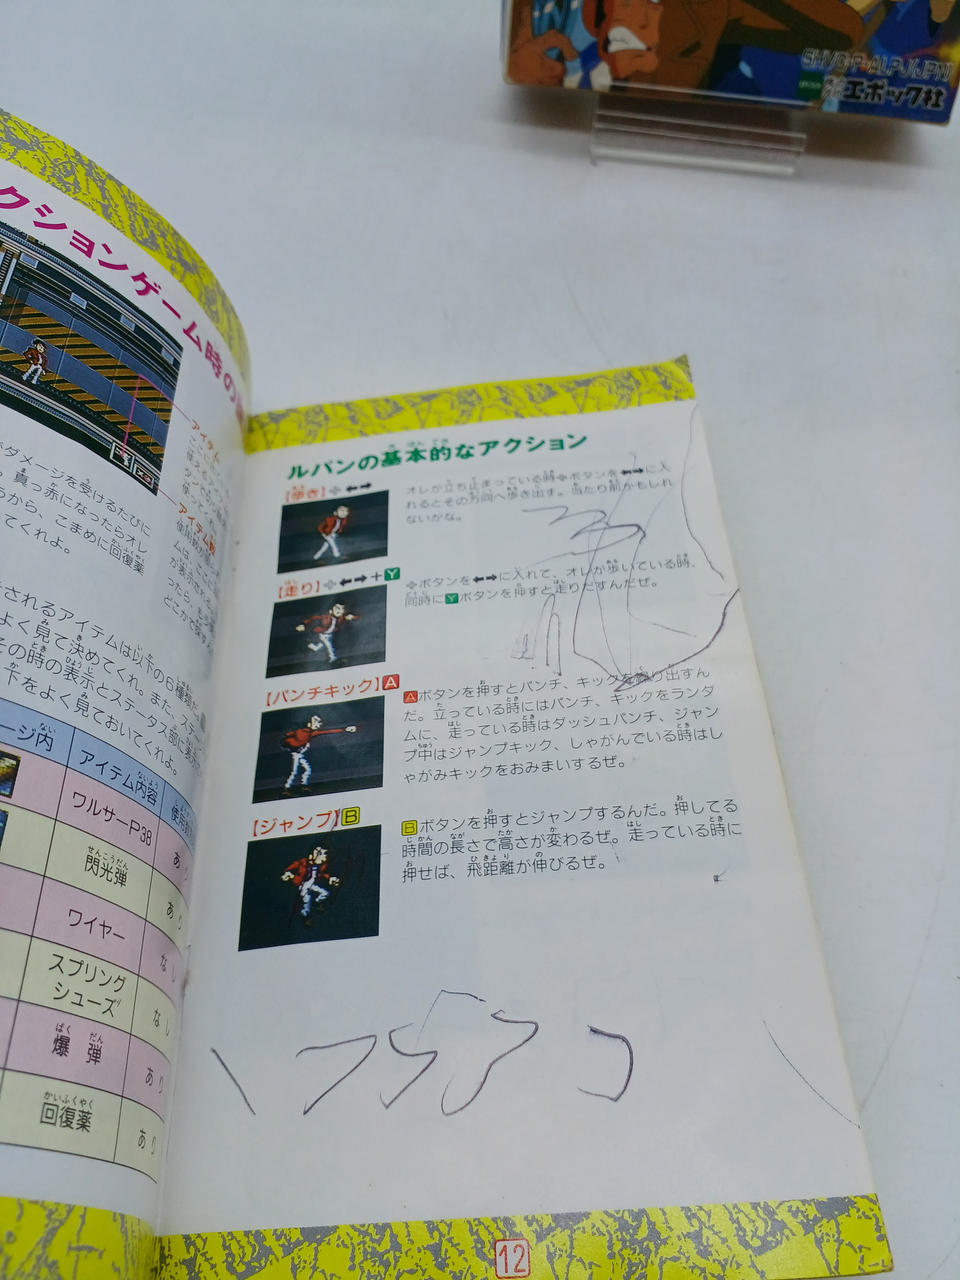 SHVC-P-ALPJ(JPN)
エポック社
クションゲーム時の
アイテム
ダメージを受けるたびに
真っ赤になったらオレ
から、こまめに回復薬
てくれよ。
されるアイテムは以下の6種類だ。
よく見て決めてくれ。また、ステー
その時の表示とステータス部に表示
下をよく見ておいてくれよ。
ージ内
アイテム内容
ワルサーP38
あり
閃光弾
あり
ワイヤー
なし
スプリング
シューズ
なし
爆弾
あり
回復薬
あり
ルパンの基本的なアクション
【歩き】✥⬅➡
オレが立ち止まっている時✥ボタンを⬅➡に入
れるとその方向へ歩き出す。当たり前かもしれ
ないがな。
【走り】✥⬅➡+Y
✥ボタンを⬅➡に入れて、オレが歩いている時、
同時にYボタンを押すと走りだすんだぜ。
【パンチキック】A
Aボタンを押すとパンチ、キックをくり出すん
だ。立っている時にはパンチ、キックをランダ
ムに、走っている時はダッシュパンチ、ジャン
プ中はジャンプキック、しゃがんでいる時はし
ゃがみキックをおみまいするぜ。
【ジャンプ】B
Bボタンを押すとジャンプするんだ。押してる
時間の長さで高さが変わるぜ。走っている時に
押せば、飛距離が伸びるぜ。
12